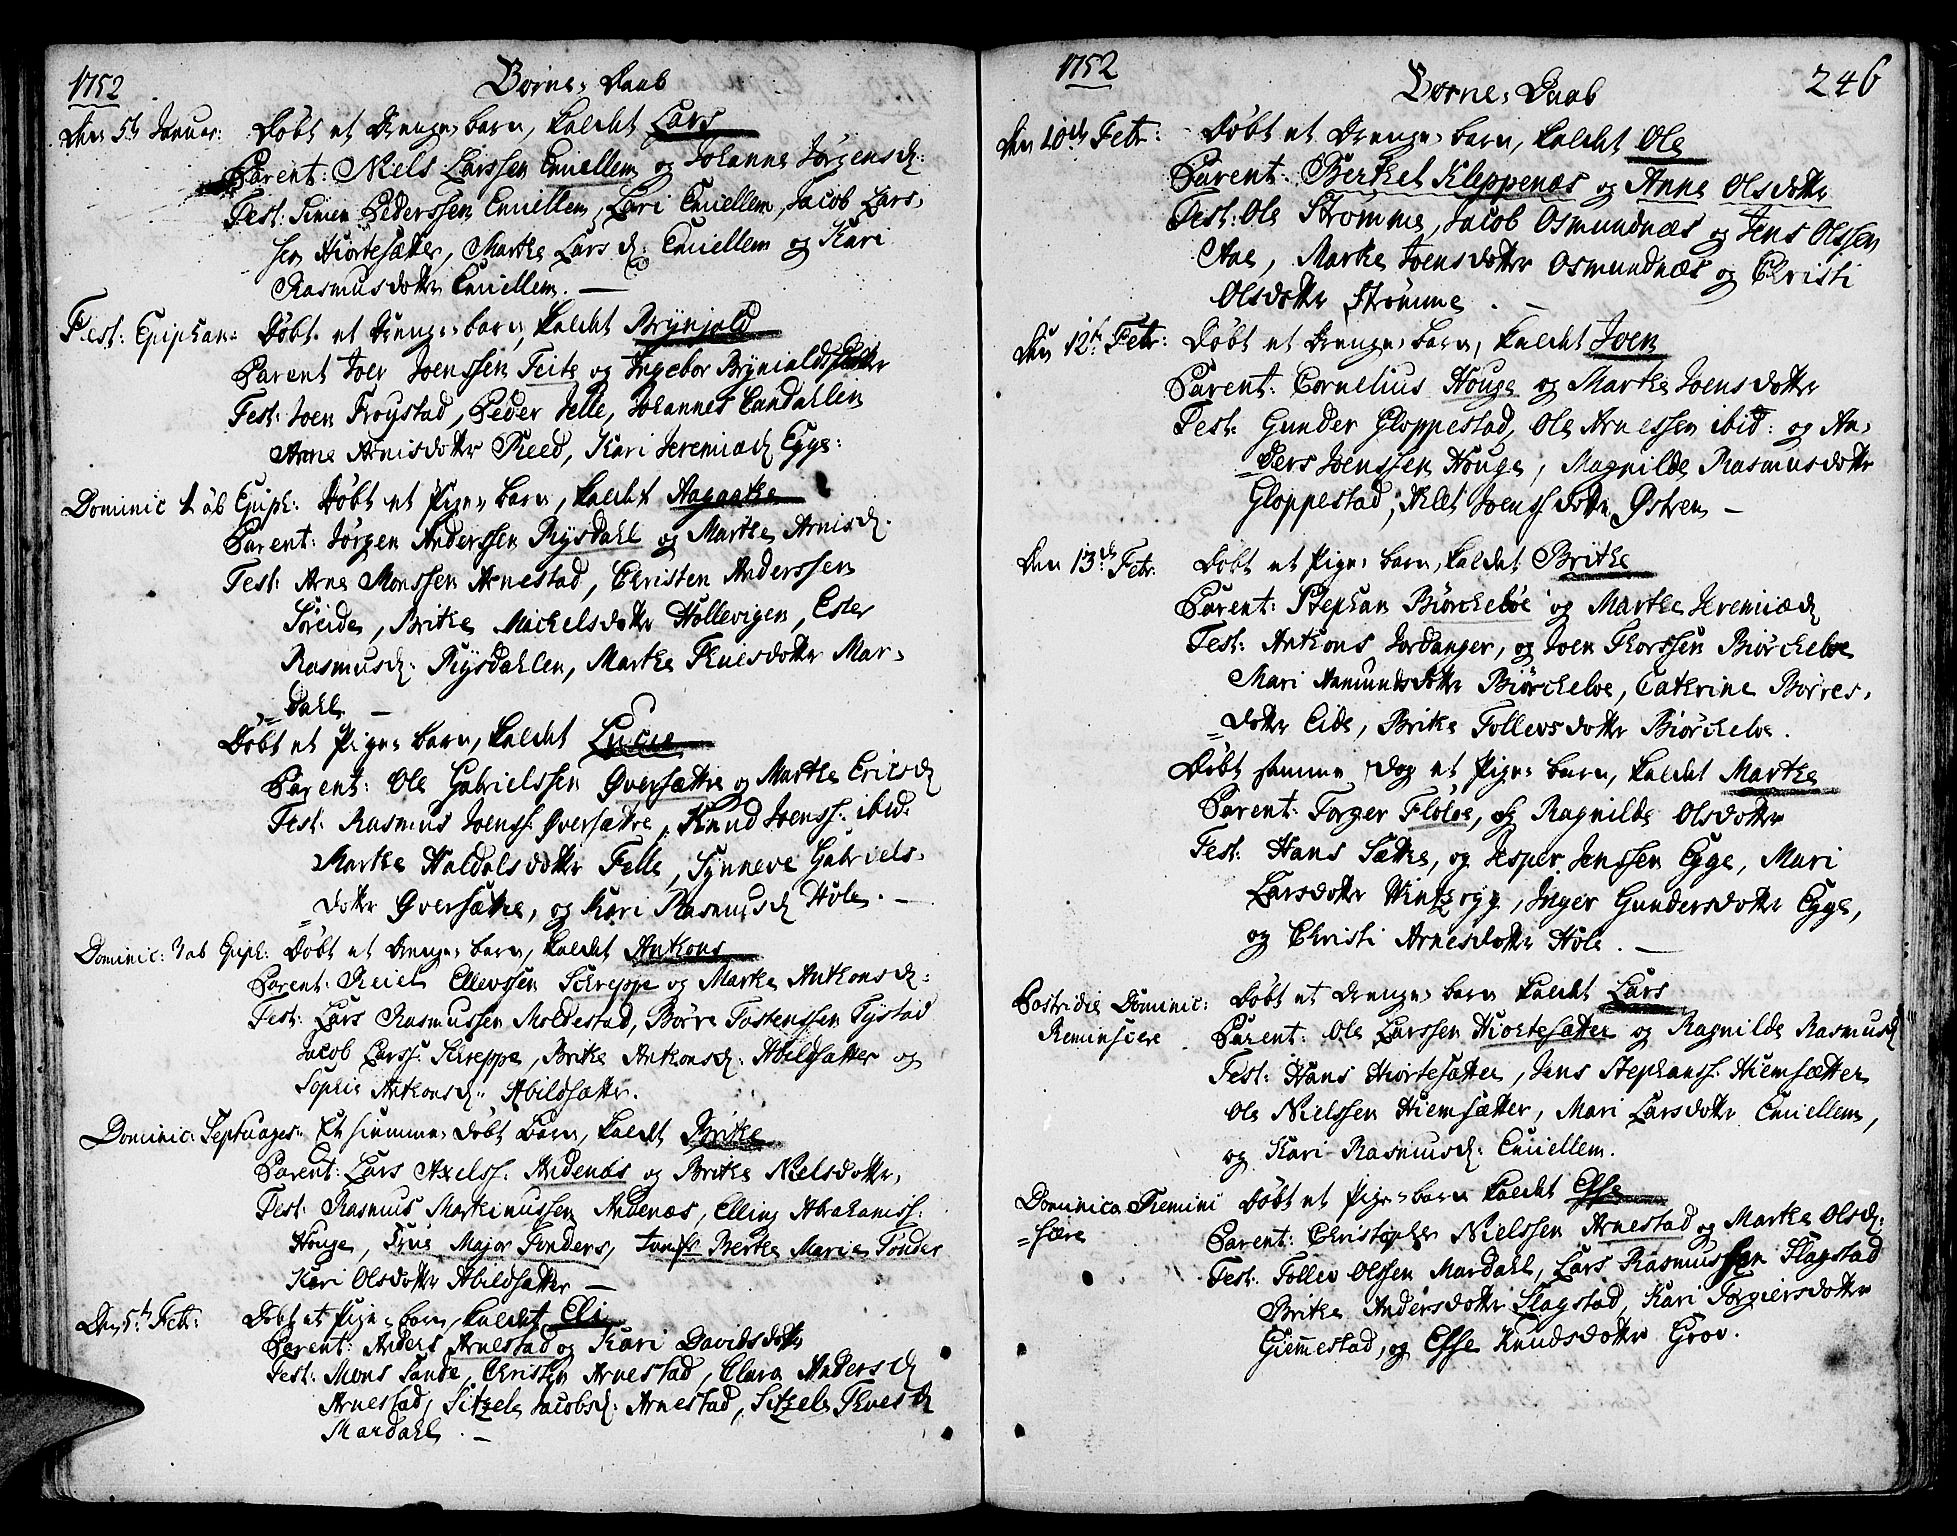 1752
Børne, Daab
Den 5t Januar: Døbt et Drenge, barn, kaldet Lars
Parent: Niels Larssen Emellem og Johanne Jørgensd:
Test: Simen Pederssen Emellem, Lari Emellem, Jacob Lars,
sen Hiortesætter, Marthe Larsd: Emellem og Kari
Rasmusdotter Emellem. —
Fest: Epiphan: Døbt et Drenge, barn, kaldet Brynjold
Parent Joen Joenssen Feite og Ingebor Brynialdsdotter
Test: Joen Frøystad, Peder Jelle, Johannes Eandahlen
Anne Arnisdotter Reed, Kari Jeremiad Egge:
Dominic 1 ab Epiph: Døbt et Pige, barn, kaldet Aagaathe
Parent: Jørgen Anderssen Rysdahl og Marthe Arnisd.
Test: Arne Monssen Arnestad, Christen Anderssen
Søreide, Brithe Michelsdotter Hollevigen, Ester
Rasmusd: Rysdahlen, Marthe Thuesdotter Mar,
dahl. —
Døbt et Pige, barn, kaldet Lucie
Parent: Ole Gabrielssen Øversættre og Marthe Ericsd
Test: Rasmus Joenss. Øversættre, Knud Joenss. ibid.
Marthe Haldolsdotter Felle, Synneve Gabriels,
dotter Øversættre, og Kari Rasmusd Hole. —
Dominic: 3 ab Epiph: Døbt et Drenge, barn, kaldet Anthons
Parent: Reiel Ellevssen Schreppe og Marthe Anthonsd:
Test: Lars Rasmussen Moldestad, Børre Tostenssen Tystad
Jacob Larss: Skreppe, Brithe Anthonsd: Abildsætter og
Sophie Anthonsd: Abildsætter.
Dominic: Septuages: Et hiemme, døbt Barn, kaldet Brithe
Parent: Lars Axelss. Andenæs og Brithe Nielsdotter,
Test: Rasmus Marthinussen Andenæs, Elling Abrahamss.
Houge, Frue Major Tønders, Jomfr Berthe Marie Tønder
Kari Olsdotter Abildsætter —
Den 5t Febr: Døbt et Pige, barn, kaldet Eli
Parent: Anders Arnestad og Kari Davidsdotter
Test: Mons Sande, Christen Arnestad, Clara Andersd
Arnestad, Sitzele Jacobsd: Arnestad, Sitzele Thuesd
Mardahl. —
1752
Børne, Daab
246
Den 10de Febr: Døbt et Drenge, barn, kaldet Ole
Parent: Berthel Kleppenæs og Anne Olsdotter
Test: Ole Strømme, Jacob Osmundnæs og Jens Olssen
Aae, Marthe Joensdotter Osmundnæs og Christi
Olsdotter Strømme. —
Den 12t Febr: Døbt et Drenge, barn, kaldet Joen
Parent: Cornelius Houge og Marthe Joensdotter
Test: Gunder Gloppestad, Ole Arnessen ibid: og An,
ders Joenssen Houge, Magnilde Rasmusdotter
Gloppestad, Alet Joensdotter Østren —
Den 13d Febr. Døbt et Pige, barn, kaldet Brithe
Parent: Stephan Biørcheløe og Marthe Jeremiæd
Test: Anthons Jordanger, og Joen Thorssen Biørcheloe
Mari Aamundsdotter Biørcheloe, Cathrine Børres,
dotter Eide, Brithe Tollevsdotter Biørcheloe.
Døbt samme dag et Pige, barn, kaldet Marthe
Parent: Torger Fløloe, og Ragnilde Olsdotter
Test: Hans Sætre, og Jesper Jenssen Egge, Mari
Larsdotter Hintzryg, Inger Gundersdotter Egge,
og Christi Arnesdotter Hole. —
Postridie Dominic: Døbt et Drenge, barn kaldet Lars
Reminscere Parent: Ole Larssen Hiortesætter og Ragnilde Rasmusd
Test: Hans Hiortesætter, Jens Stephanss. Hiemsætter
Ole Nielssen Hiemsætter, Mari Larsdotter Emellem,
og Kari Rasmusd: Emellem.
Dominica Remini Døbt et Pige, barn kaldet Esse
scere Parent: Christopher Nielssen Arnestad og Marthe Olsd:
Test: Tollev Olssen Mardahl, Lars Rasmussen Slagstad
Brithe Andersdotter Slagstad, Kari Torgiersdotter
Giemestad, og Esse Knudsdotter Grov.